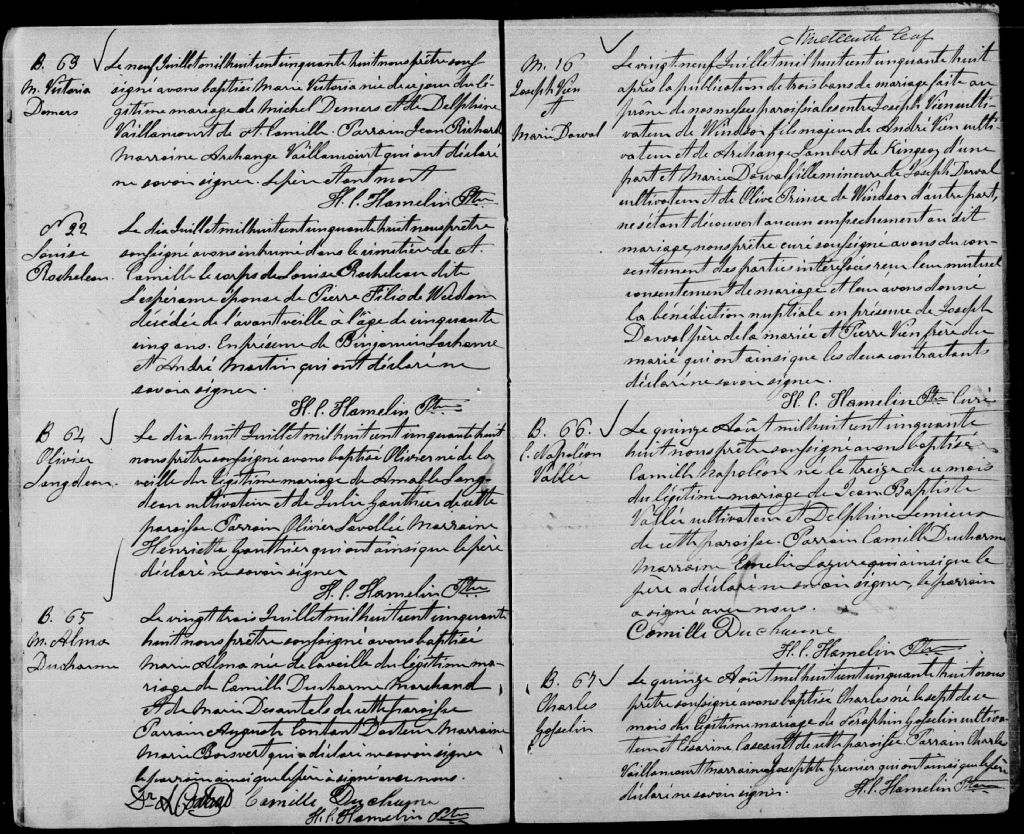 B. 63
M. Victoria
Demers
Le neuf Juillet mil huit cent cinquante huit nous prêtre sous
signé avons baptisé Marie Victoria née ce jour du lé
gitime mariage de Michel Demers et de Delphine
Vaillancourt de St Camille. Parrain Jean Richard
Marraine Archange Vaillancourt qui ont déclaré
ne savoir signer. Le père étant mort
H. P. Hamelin Ptre
S 22
Louise
Rocheleau
Le dix Juillet mil huit cent cinquante huit nous prêtre
soussigné avons inhumé dans le cimitière de St
Camille le corps de Louise Rocheleau dite
Lespérance épouse de Pierre de
décédée de l'avant veille à l'âge de cinquante
cinq ans. En présence de Bingamin
et André Martin qui ont déclaré ne
savoir signer.
H. P. Hamelin Ptre
B 64
Olivier
Langdeau
Le dix huit Juillet mil huit cent cinquante huit
nous prêtre soussigné avons baptisé Olivier né de la
veille du légitime mariage de Amable Lang
deau cultivateur et de Julie Gauthier de cette
paroisse. Parrain Olivier Lavallée Marraine
Henriette Gauthier qui ont ainsi que le père
déclaré ne savoir signer
H. P. Hamelin Ptre
B. 65
M. Alma
Ducharme
Le vingt trois Juillet mil huit cent cinquante
huit nous prêtre soussigné avons baptisé
Marie Alma née de la veille du légitime ma-
riage de Camille Ducharme Marchand
et de Marie Desautels de cette paroisse
Parrain Auguste Docteur Marraine
Marie Boisvert qui a déclaré ne savoir signer
le parrain ainsi que le père a signé avec nous.
Camille Ducharme
H. P. Hamelin Ptre
Nineteenth leaf
M. 16
Joseph Vien
et
Marie Darval
Le vingt neuf Juillet mil huit cent cinquante huit
après la publication de trois bans de mariage faite au
prône de nos messes paroissiales entre Joseph Vien culti-
vateur de Windsor fils majeur de André Vien culti-
vateur et de Archange Lambert de Kingsey d'une
part et Marie Darval fille mineure de Joseph Darval
cultivateur et de Olive Prince de Windsor d'autre part,
ne s'étant découvert aucun empechement au dit
mariage, nous prêtre curé soussigné avons du con-
sentement des parties intéréssées reçu leur mutuel
consentement de mariage et leur avons donné
la bénédiction nuptiale en présence de Joseph
Darval père de la mariée et Pierre Vien frère du
marié qui ont ainsi que les deux contractants
déclaré ne savoir signer.
H. P. Hamelin Ptre Curé
B. 66.
C. Napoléon
Vallée
Le quinze Août mil huit cent cinquante
huit nous prêtre soussigné avons baptisé
Camille Napoléon né le treize de ce mois
du légitime mariage de Jean Baptiste
Vallée cultivateur et Delphine Lemieux
de cette paroisse. Parrain Camille Ducharme
Marraine Emélie qui ainsi que le
père a déclaré ne savoir signer, le parrain
a signé avec nous.
Camille Ducharme
H. P. Hamelin Ptre
B. 67
Charles
Gosselin
Le quinze Août mil huit cent cinquante huit nous
prêtre soussigné avons baptisé Charles né le sept de ce
mois du légitime mariage de Séraphin Gosselin cultiva-
teur et Césarine de cette paroisse. Parrain Charles
Vaillancourt Marraine Josephte Grenier qui ont ainsi que le père
déclaré ne savoir signer.
H. P. Hamelin Ptre